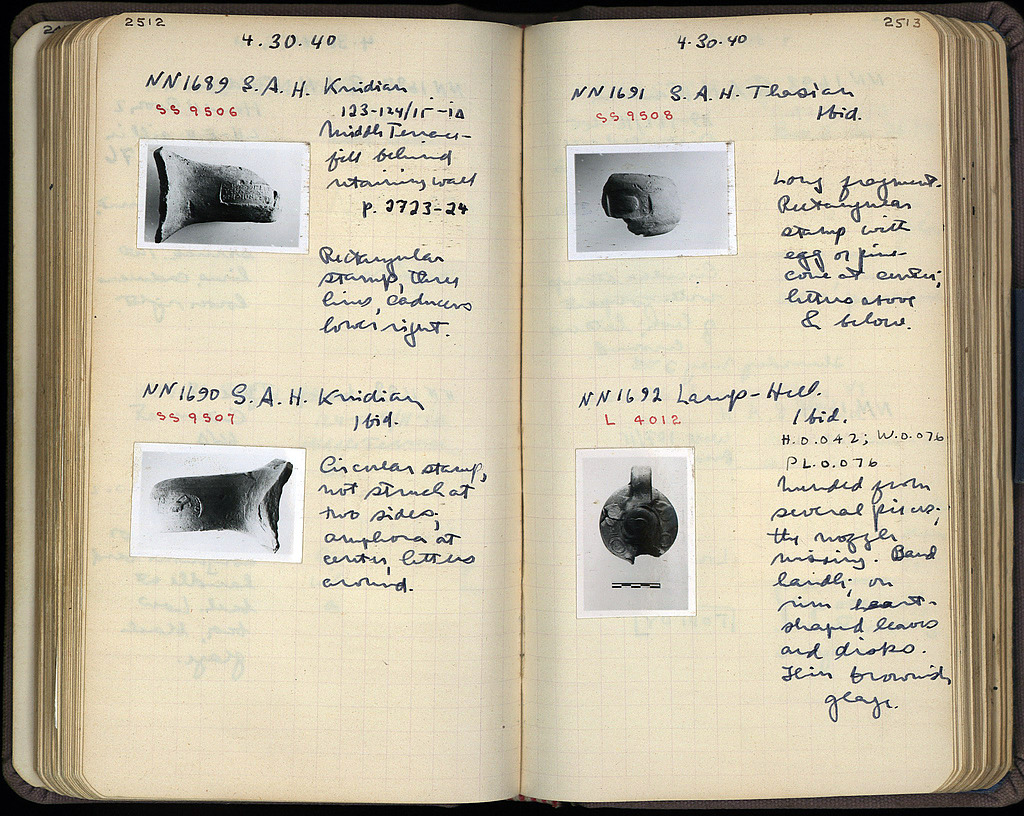 2512
4.30.40
NN1689 S.A.H. Knidian
SS 9506
123-124/15-1Δ
Middle Terrace-
fill behind
retaining wall
p. 2723-24
Rectangular
stamp, three
lines, caduceus
lower right.
NN1690 S.A.H. Knidian
SS 9507
Ibid.
Circular stamp,
not struck at
two sides;
amphora at
center, letters
around.
2513
4.30.40
NN1691 S.A.H. Thasian
SS 9508
Ibid.
Long fragment.
Rectangular
stamp with
egg or pine-
cone at center;
letters above
& below.
NN1692 Lamp-Hell.
L 4012
Ibid.
H.0.042; W.0.076
PL.0.076
Mended from
several pieces;
the nozzle
missing. Band
handle; on
rim heart-
shaped leaves
and disks.
Thin brownish
glaze.